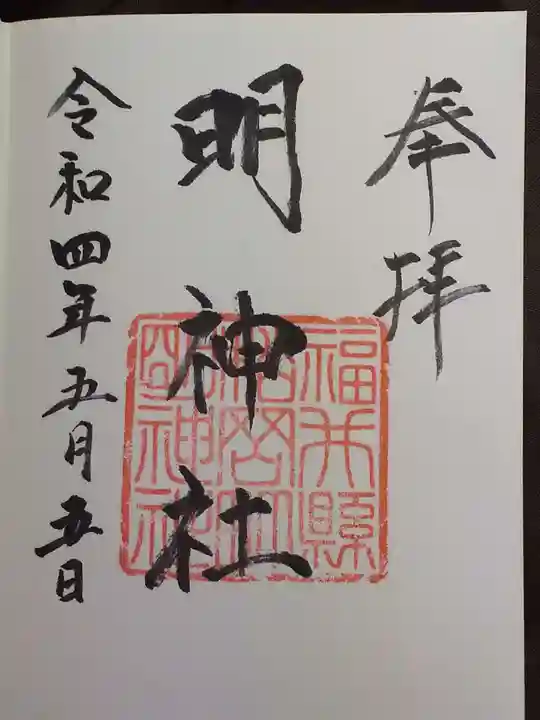 奉拝
明神社
令和四年五月五日
福井縣
明神社